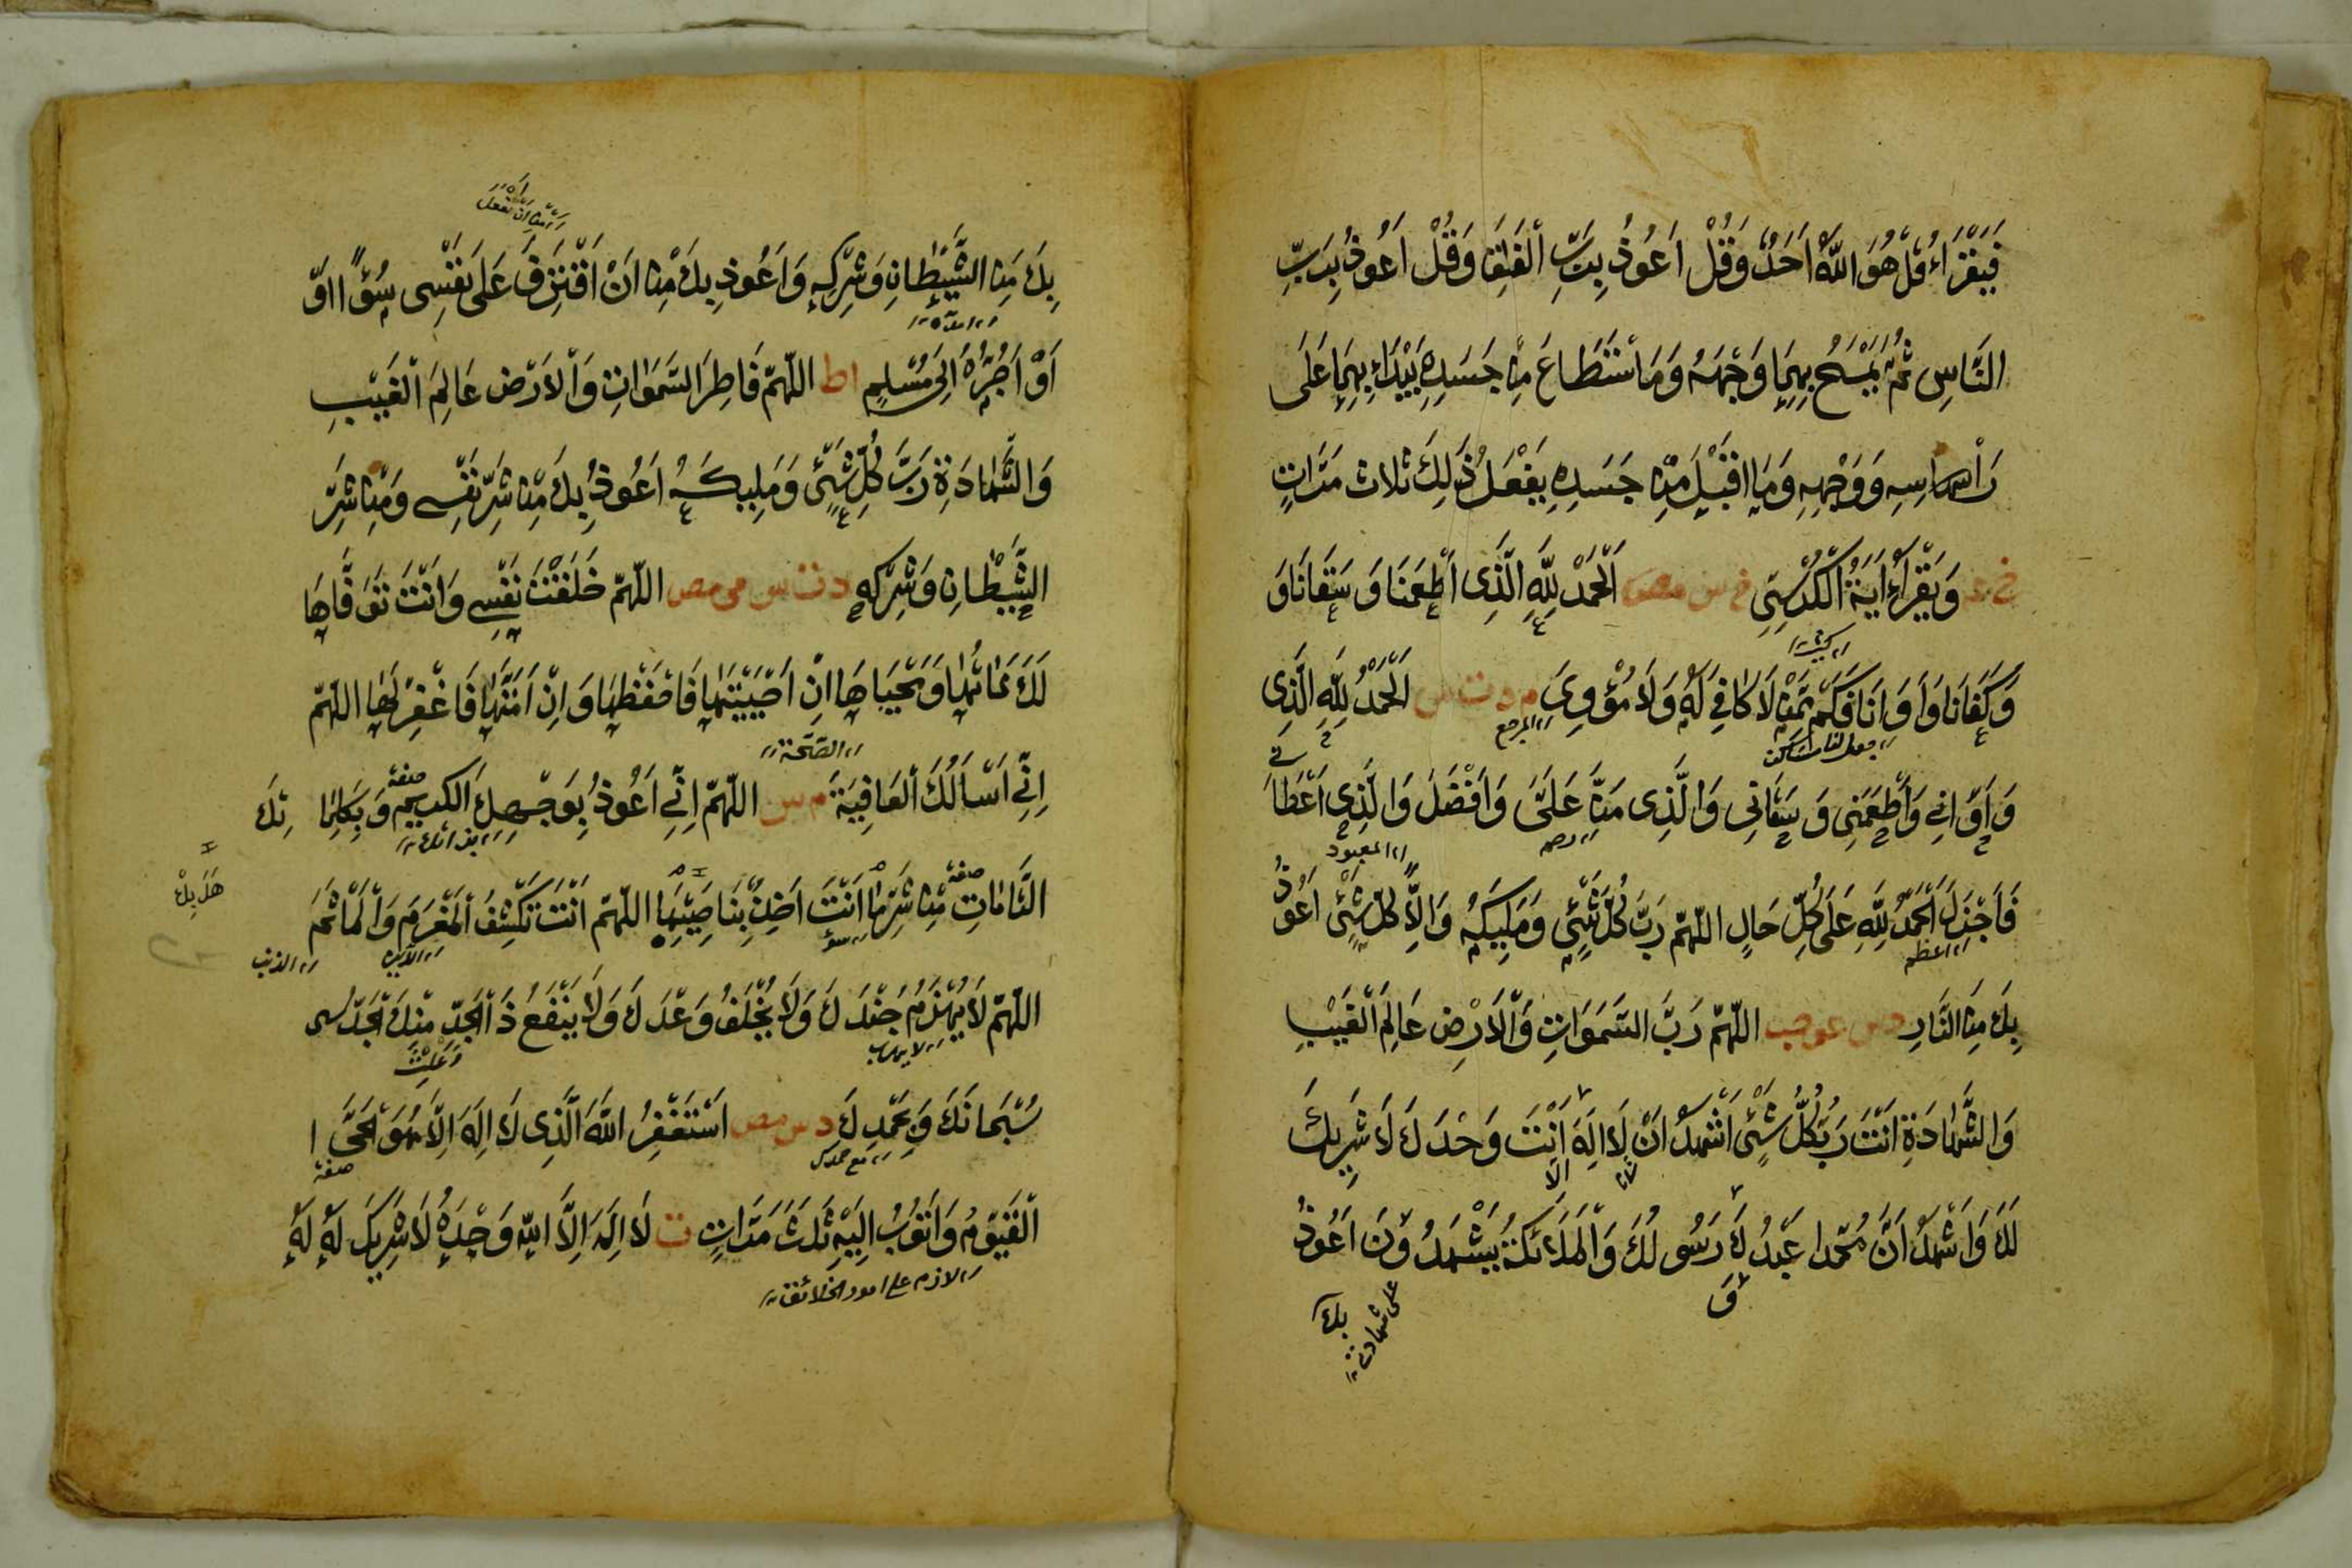 فَيَقْرَاءُ قُلْ هُوَ اللّٰهُ اَحَدٌ وَقُلْ اَعُوذُ بِرَبِّ الْفَلَقِ وَقُلْ اَعُوذُ بِرَبِّ
النَّاسِ ثُمَّ يَمْسَحُ بِهِمَا وَجْهَهُ وَمَا اسْتَطَاعَ مِنْ جَسَدِهِ يَبْدَاءُ بِهِمَا عَلَى
رَأْسِهِ وَوَجْهِهِ وَمَا اقْبَلَ مِنْ جَسَدِهِ يَفْعَلُ ذٰلِكَ ثلاث مَرَّاتٍ
خ عه وَيَقْرَاُ اٰيَةَ الْكُرْسِيِّ خ س مص اَلْحَمْدُ لِلّٰهِ الَّذِى اَطْعَمَنَا وَسَقَانَا وَ
وَكَفَانَا وَاٰوَانَا فَكَمْ مِمَّنْ لَا كَافِىَ لَهُ وَلَا مُؤْوِىَ م د ت س اَلْحَمْدُ لِلّٰهِ الَّذِى
المرجع
وَاٰوَانِى وَاَطْعَمَنِى وَسَقَانِى وَالَّذِى مَنَّ عَلَىَّ وَاَفْضَلَ وَالَّذِى اَعْطَا
المعبود
فَاَجْزَلَ اَلْحَمْدُ لِلّٰهِ عَلَى كُلِّ حَالٍ اللّٰهُمَّ رَبَّ كُلِّ شَيْئٍ وَمَلِيكَهُ وَاِلٰهَ كُلِّ شَيْئٍ اَعُوْذُ
اعظم
بِكَ مِنَ النَّارِ د س عو حب اللّٰهُمَّ رَبَّ السَّمَوَاتِ وَالْاَرْضِ عَالِمَ الْغَيْبِ
وَالشَّهَادَةِ اَنْتَ رَبُّ كُلِّ شَيْئٍ اَشْهَدُ اَنْ لَا اِلٰهَ اَنْتَ وَحْدَكَ لَا شَرِيكَ
الا
لَكَ وَاَشْهَدُ اَنَّ مُحَمَّدا عَبْدُكَ رَسُولُكَ وَالْمَلَائِكَةُ يَشْهَدُونَ اَعُوذُ
وَ
بك
بِكَ مِنَ الشَّيْطَانِ وَشِرْكِهِ وَاَعُوذُ بِكَ مِنْ اَنْ اَقْتَرِفَ عَلَى نَفْسِى سُوْٓءًا اَوْ
اَوْ اَجُرَّهُ اِلَى مُسْلِمٍ اط اللّٰهُمَّ فَاطِرَ السَّمَوَاتِ وَالْاَرْضِ عَالِمَ الْغَيْبِ
وَالشَّهَادَةِ رَبَّ كُلِّ شَيْئٍ وَمَلِيكَهُ اَعُوذُ بِكَ مِنْ شَرِّ نَفْسِى وَمِنْ شَرِّ
الشَّيْطَانِ وَشِرْكِهِ د ت س مى مص اللّٰهُمَّ خَلَقْتَ نَفْسِى وَاَنْتَ تَوَفَّاهَا
لَكَ مَمَاتُهَا وَمَحْيَاهَا اِنْ اَحْيَيْتَهَا فَاحْفَظْهَا وَاِنْ اَمَتَّهَا فَاغْفِرْ لَهَا اللّٰهُمَّ
الصحة
اِنِّى اَسْاَلُكَ الْعَافِيَةَ م س اللّٰهُمَّ اِنِّى اَعُوذُ بِوَجْهِكَ الْكَرِيمِ وَبِكَلِمَا تِكَ
صفة
التَّامَاتِ مِنْ شَرِّ مَا اَنْتَ اٰخِذٌ بِنَاصِيَتِهَا اللّٰهُمَّ اَنْتَ تَكْشِفُ الْمَغْرَمَ وَالْمَاْثَمَ
الذنب
اللّٰهُمَّ لَا يُهْزَمُ جُنْدُكَ وَلَا يُخْلَفُ وَعْدُكَ وَلَا يَنْفَعُ ذَا الْجَدِّ مِنْكَ الْجَدُّ
سُبْحَانَكَ وَبِحَمْدِكَ د س مص اَسْتَغْفِرُ اللّٰهَ الَّذِى لَا اِلٰهَ اِلَّا هُوَ الْحَىَّ ا
صفة
الْقَيُّومُ وَاَتُوبُ اِلَيْهِ ثَلٰثَ مَرَّاتٍ ت لَا اِلٰهَ اِلَّا اللّٰهُ وَحْدَهُ لَا شَرِيكَ لَهُ لَهُ